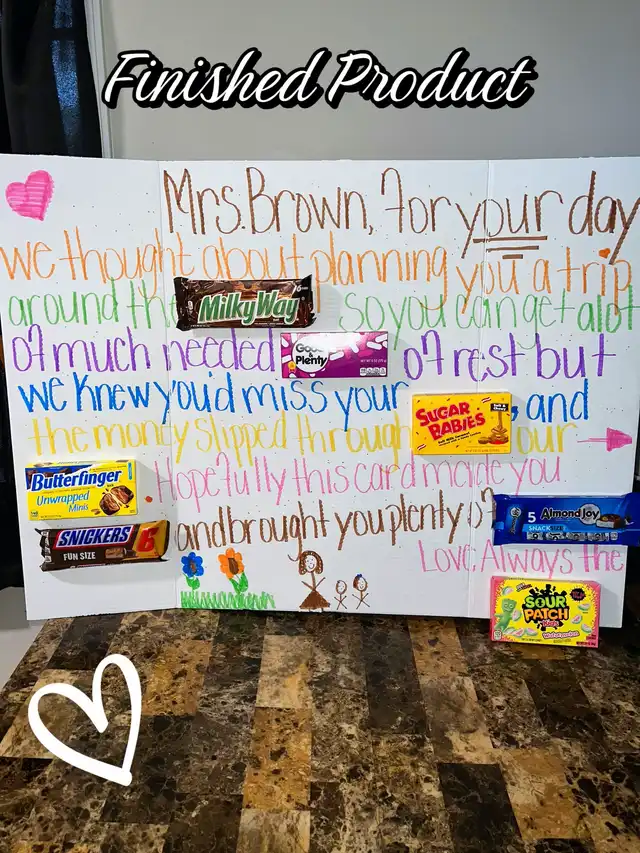 Finished Product
Mrs. Brown, For your day
we thought about planning you a trip
around the MilkyWay so you can get alot
of much needed Good & Plenty of rest but
we knew you'd miss your SUGAR BABIES, and
the money slipped through our →
Butterfinger Unwrapped Minis . Hopefully this card made you
SNICKERS FUN SIZE 6 and brought you plenty of 5 Almond Joy SNACK SIZE
Love, Always the
SOUR PATCH Kids Watermelon